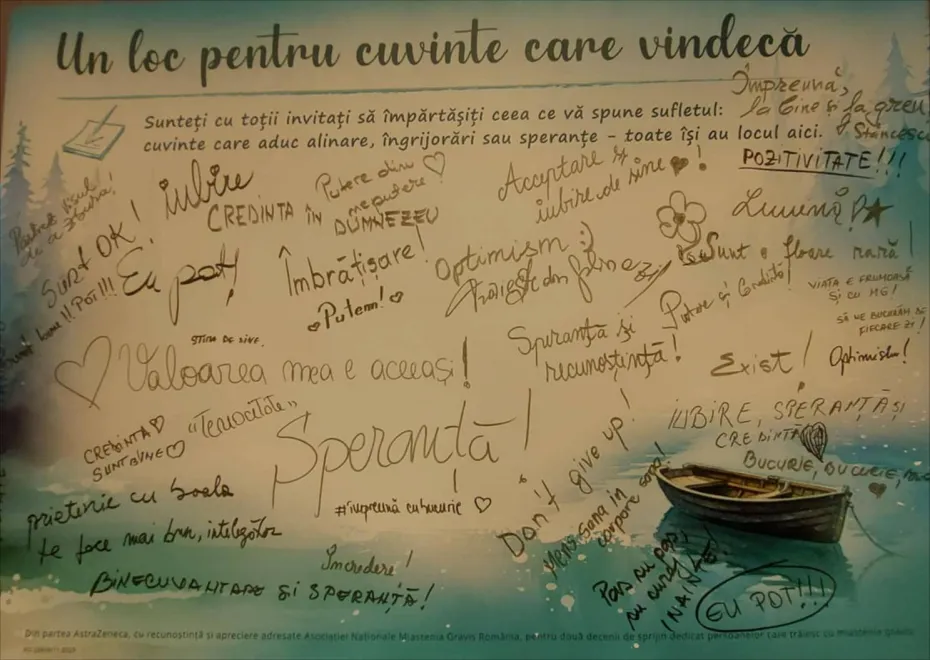 Un loc pentru cuvinte care vindecă
Împreună,
la bine și la greu
Stănescu
Sunteți cu toții invitați să împărtășiți ceea ce vă spune sufletul:
cuvinte care aduc alinare, îngrijorări sau speranțe – toate își au locul aici.
POZITIVITATE!!!
iubire
Putere din
neputere!
Acceptare și
iubire de sine!
de a zbura!
CREDINTA ÎN
DUMNEZEU
Lumină!
Sunt OK!
Eu pot!
Îmbrățișare!
Optimism :)
Sunt o floare rară!
Poți!!!
Putem!
Putere și Credință!
VIAȚA E FRUMOASĂ
ȘI CU MG!
SĂ NE BUCURĂM DE
FIECARE ZI!
STIMA DE SINE.
Valoarea mea e aceeași!
Speranță și
recunoștință!
Exist!
Optimism!
CREDINTA
SUNT BINE
"Tenacitate"
Speranță!
IUBIRE, SPERANȚĂ ȘI
CREDINȚĂ
BUCURIE, BUCURIE,
Don't give up!
Mens sana in
corpore sano!
prietenie cu boala
te face mai bun, înțelegător
#împreună cu bucurie
Încredere!
BINECUVANTARE SI SPERANȚĂ!
Pas cu pas,
cu curaj
ÎNAINTE!
EU POT!!!
Din partea AstraZeneca, cu recunoștință și apreciere adresate Asociației Naționale Miastenia Gravis România, pentru două decenii de sprijin dedicat persoanelor care trăiesc cu miastenie gravis